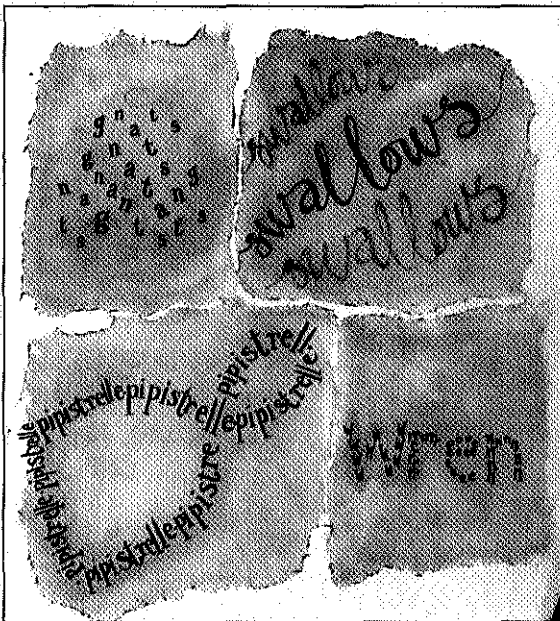 gnats
gnats
swallows
swallows
swallows
pipistrelle
pipistrellepipistrellepipistrelle
pipistrelle pipistrelle
pipistrellepipistre
wren